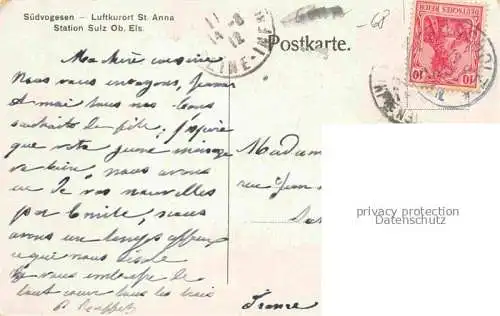 Südvogesen — Luftkurort St. Anna
Station Sulz Ob. Els.
Postkarte.
68
DEUTSCHES REICH
10 10
14 8
12
Ma chère cousine
Nous vous envoyons, Jeanne
et moi tous nos bons
souhaits de fête; j'espère
que votre jeune ménage
va bien, nous avons
eu de vos nouvelles
par Emile, nous
avons un temps affreux
ce qui nous désole
Je vous embrasse de
tout cœur tous les trois
Madame
rue Jean
France
privacy protection
Datenschutz